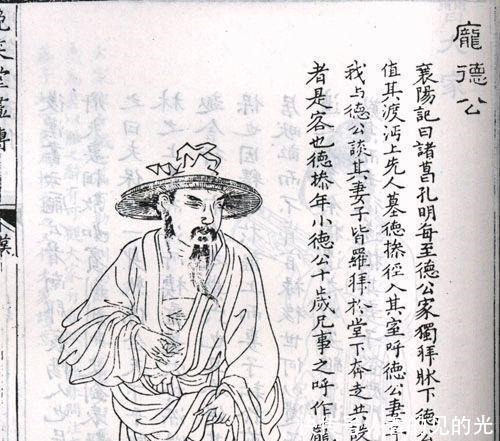 龐德公
襄陽記曰諸葛孔明每至德公家獨拜牀下德
值其渡沔上先人墓德操徑入其室呼德公妻
我与德公談其妻子皆羅拜於堂下奔走共設
者是客也德操年小德公十歲凡事之呼作龐
晚笑堂畫傳
漢
见的光